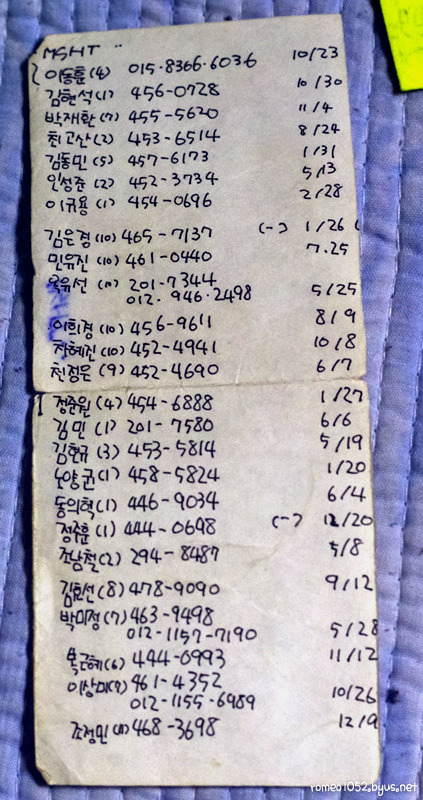 MSHT
이동훈(4) 015-8366-6036 10/23
김현석(1) 456-0728 10/30
박재환(7) 455-5620 11/4
최고산(2) 453-6514 8/24
김동민(5) 457-6173 1/31
인성준(2) 452-3734 5/13
이규용(1) 454-0696 2/28
김은경(10) 465-7137 (-) 1/26
민유진(10) 461-0440 7.25
옥유선 201-7344
012. 946-2498 5/25
이희경(10) 456-9611 8/9
차혜진(10) 452-4941 10/8
천정은(9) 452-4690 6/7
정준원(4) 454-6888 1/27
김민(1) 201-7580 6/6
김현규(3) 453-5814 5/19
노양균(1) 458-5824 1/20
동의혁(1) 446-9034 6/4
정준훈(1) 444-0698 (-) 12/20
조남철(2) 294-8487 5/8
김효선(8) 478-9090 9/12
박미정(7) 463-9498
012-1157-7190 5/28
(6) 444-0993 11/12
이상미(7) 461-4352
012-1155-6989 10/26
조정민 468-3698 12/9
romeo1052.byus.net